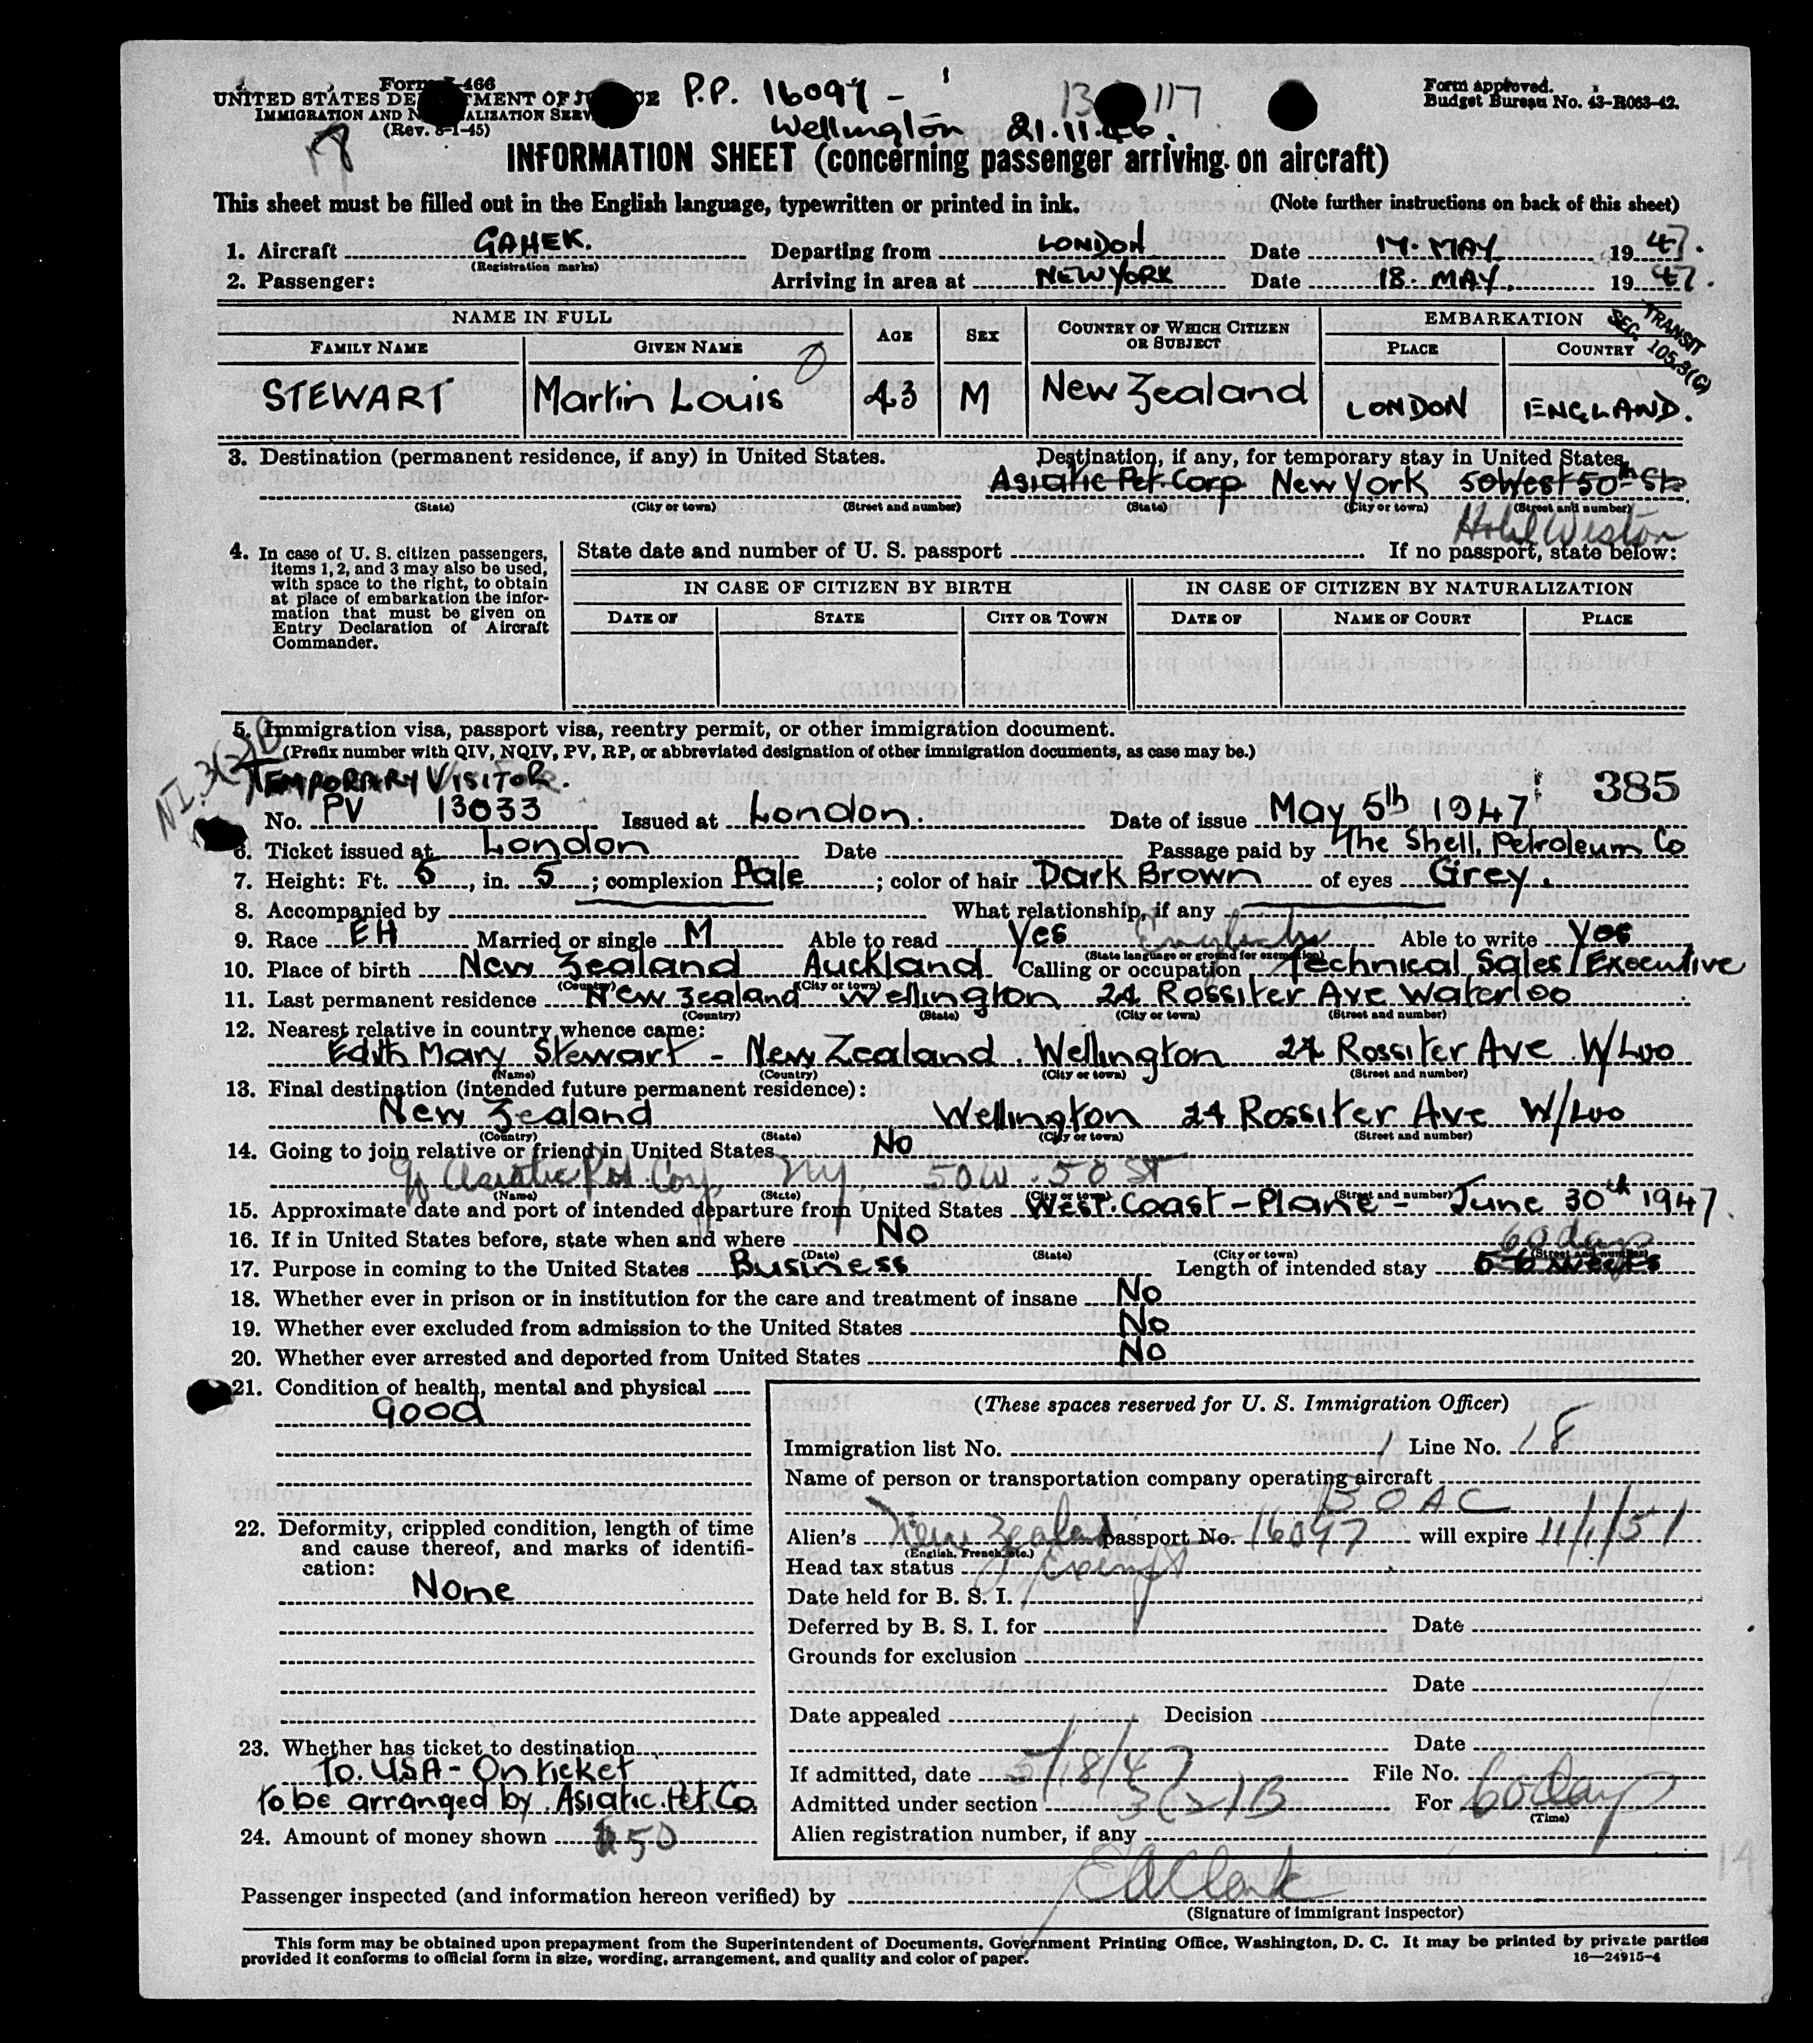 Form I-466
UNITED STATES DEPARTMENT OF JUSTICE
IMMIGRATION AND NATURALIZATION SERVICE
(Rev. 8-1-45)
P.P. 16097 -
Wellington 21.11.46.
13 117
Form approved.
Budget Bureau No. 43-R063-42.
INFORMATION SHEET (concerning passenger arriving on aircraft)
This sheet must be filled out in the English language, typewritten or printed in ink. (Note further instructions on back of this sheet)
1. Aircraft GAHEK. Departing from LONDON Date 17. MAY 1947.
(Registration marks)
2. Passenger: Arriving in area at NEW YORK Date 18. MAY. 1947.
TRANSIT
SEC. 105.3(G)
NAME IN FULL AGE SEX COUNTRY OF WHICH CITIZEN OR SUBJECT EMBARKATION
FAMILY NAME GIVEN NAME PLACE COUNTRY
STEWART Martin Louis 43 M New Zealand LONDON ENGLAND.
3. Destination (permanent residence, if any) in United States. Destination, if any, for temporary stay in United States.
Asiatic Pet. Corp New York 50 West 50th St
(State) (City or town) (Street and number) (State) (City or town) (Street and number)
Hotel Weston
4. In case of U. S. citizen passengers, items 1, 2, and 3 may also be used, with space to the right, to obtain at place of embarkation the information that must be given on Entry Declaration of Aircraft Commander.
State date and number of U. S. passport If no passport, state below:
IN CASE OF CITIZEN BY BIRTH IN CASE OF CITIZEN BY NATURALIZATION
DATE OF STATE CITY OR TOWN DATE OF NAME OF COURT PLACE
5. Immigration visa, passport visa, reentry permit, or other immigration document.
(Prefix number with QIV, NQIV, PV, RP, or abbreviated designation of other immigration documents, as case may be.)
TEMPORARY VISITOR.
385
No. PV 13033 Issued at London. Date of issue May 5th 1947
6. Ticket issued at London Date Passage paid by The Shell Petroleum Co
7. Height: Ft. 5, in. 5; complexion Pale; color of hair Dark Brown of eyes Grey.
8. Accompanied by What relationship, if any
9. Race EH Married or single M Able to read Yes English Able to write Yes
(State language or ground for exemption)
10. Place of birth New Zealand Auckland Calling or occupation Technical Sales Executive
(Country) (City or town)
11. Last permanent residence New Zealand Wellington 24 Rossiter Ave Waterloo
(Country) (State) (City or town) (Street and number)
12. Nearest relative in country whence came:
Edith Mary Stewart - New Zealand. Wellington 24 Rossiter Ave W/Loo
(Name) (Country) (City or town) (Street and number)
13. Final destination (intended future permanent residence):
New Zealand Wellington 24 Rossiter Ave W/Loo
(Country) (State) (City or town) (Street and number)
14. Going to join relative or friend in United States No
Asiatic Pet. Corp. NY. 50 W. 50 ST
(Name) (State) (City or town) (Street and number)
15. Approximate date and port of intended departure from United States West Coast - Plane - June 30th 1947.
16. If in United States before, state when and where No
(Date) (State) (City or town) (Street and number)
60 days
17. Purpose in coming to the United States Business Length of intended stay 5-6 weeks
18. Whether ever in prison or in institution for the care and treatment of insane No
19. Whether ever excluded from admission to the United States No
20. Whether ever arrested and deported from United States No
21. Condition of health, mental and physical
good
22. Deformity, crippled condition, length of time and cause thereof, and marks of identification:
None
23. Whether has ticket to destination
To. USA - On ticket
to be arranged by Asiatic Pet. Co.
24. Amount of money shown $50
(These spaces reserved for U. S. Immigration Officer)
Immigration list No. 1 Line No. 18
Name of person or transportation company operating aircraft
BOAC
Alien's New Zealand passport No. 16097 will expire 11/1/51
(English, French, etc.)
Head tax status Exempt
Date held for B. S. I.
Deferred by B. S. I. for Date
Grounds for exclusion
Date
Date appealed Decision
Date
If admitted, date 5/18/47 File No.
Admitted under section 3(2)B For 60 days
(Time)
Alien registration number, if any
14
Passenger inspected (and information hereon verified) by
(Signature of immigrant inspector)
This form may be obtained upon prepayment from the Superintendent of Documents, Government Printing Office, Washington, D. C. It may be printed by private parties
provided it conforms to official form in size, wording, arrangement, and quality and color of paper.
16—24915-4